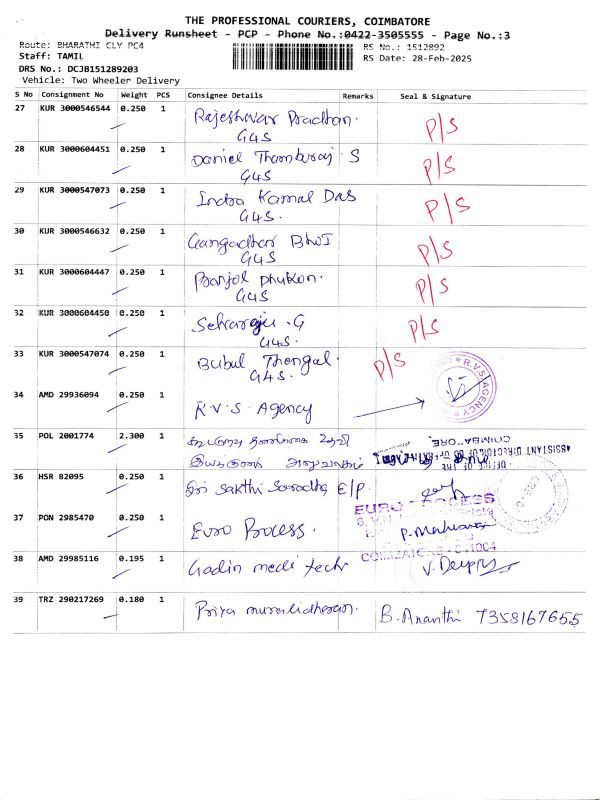 THE PROFESSIONAL COURIERS, COIMBATORE
Delivery Runsheet - PCP - Phone No.:0422-3505555 - Page No.:3
Route: BHARATHI CLY PC4
RS No.: 1512892
Staff: TAMIL
RS Date: 28-Feb-2025
DRS No.: DCJB151289203
Vehicle: Two Wheeler Delivery
S No Consignment No Weight PCS Consignee Details Remarks Seal & Signature
27 KUR 3000546544 0.250 1 Rajeshwar Pradhan. P/S
G4S
28 KUR 3000604451 0.250 1 Daniel Thamburaj S P/S
G4S
29 KUR 3000547073 0.250 1 Indra Kamal Das P/S
G4S.
30 KUR 3000546632 0.250 1 Gangadhar BhoI P/S
G4S
31 KUR 3000604447 0.250 1 Pranjol phukon. P/S
G4S
32 KUR 3000604450 0.250 1 Selvaraju .G P/S
G4S.
33 KUR 3000547074 0.250 1 Bubul Thengal. P/S
G4S.
34 AMD 29936094 0.250 1 R.V.S Agency
R.V.S. AGENCY
35 POL 2001774 2.300 1
OFFICE OF THE
ASSISTANT DIRECTOR
COIMBATORE.
36 HSR 82095 0.250 1 Sri Sakthi Saradha E/P
37 PON 2985470 0.250 1 Euro Process.
EURO PROCESS
P. Maheswari
38 AMD 29985116 0.195 1 Gadin medi tech
39 TRZ 290217269 0.180 1 Priya muralidharan. B. Ananthi 7358167655